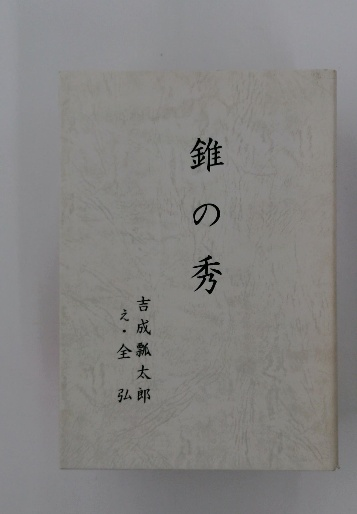 錐の秀
吉成瓢太郎
え・全弘